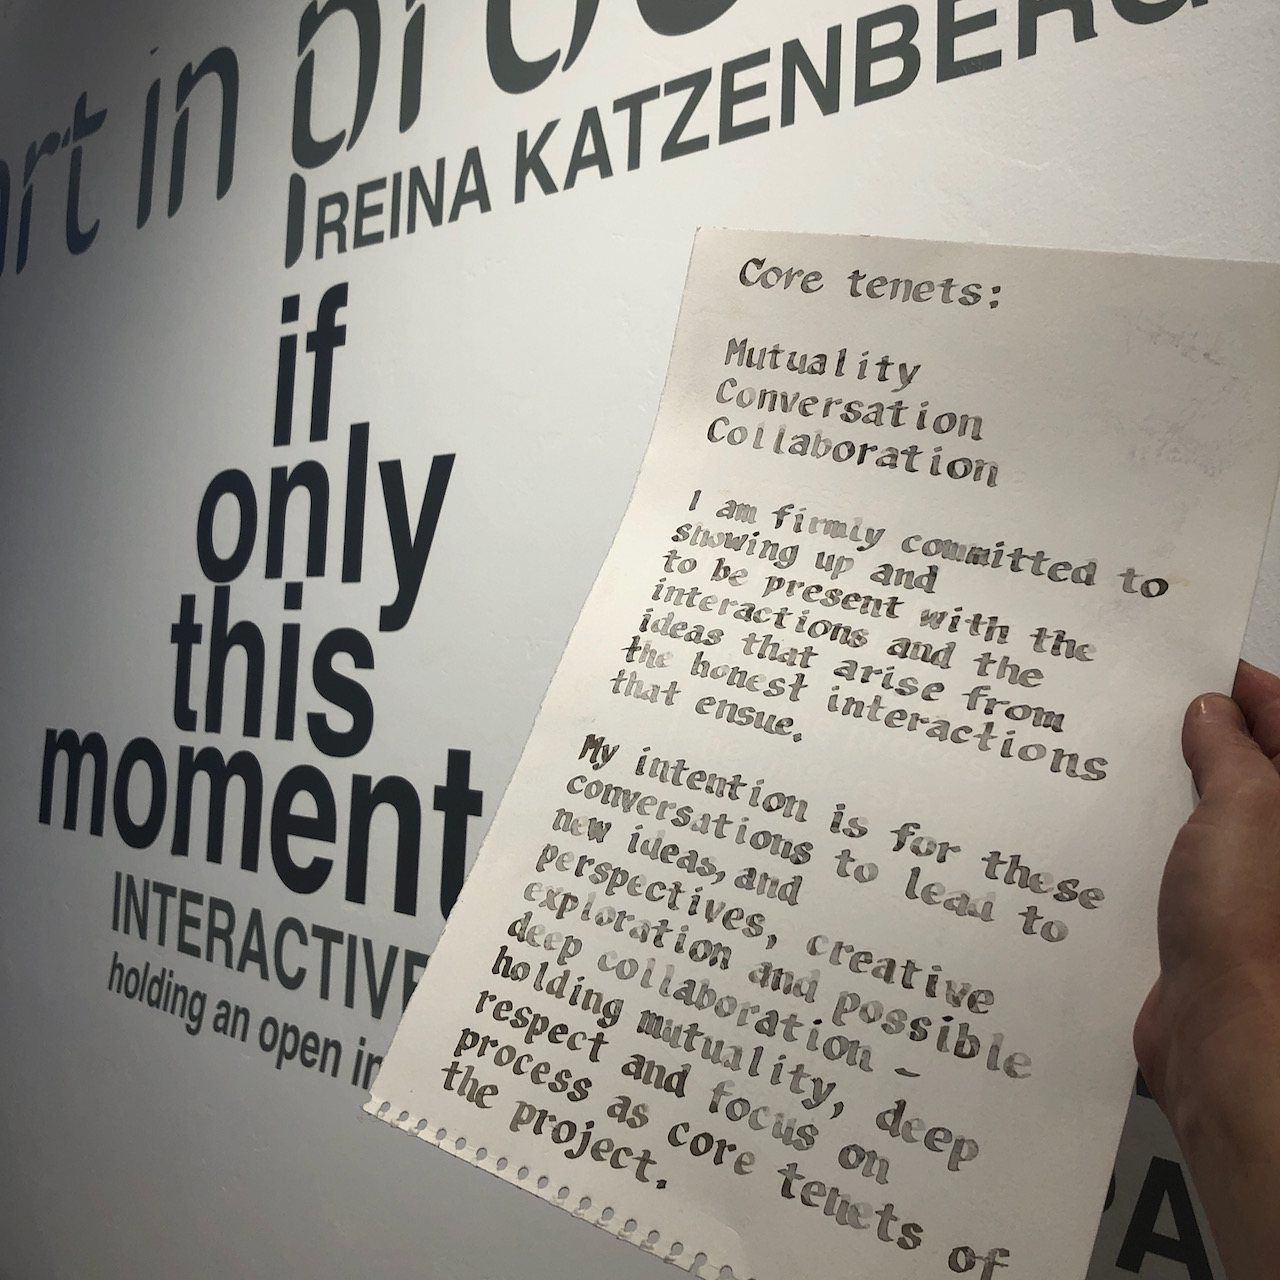 art in
REINA KATZENBERG
if
only
this
moment
INTERACTIVE
holding an open
Core tenets:
Mutuality
Conversation
Collaboration
I am firmly committed to
showing up and
to be present with the
interactions and the
ideas that arise from
the honest interactions
that ensue.
My intention is for these
conversations to lead to
new ideas, and
perspectives, creative
exploration and possible
deep collaboration –
holding mutuality, deep
respect and focus on
process as core tenets of
the project.